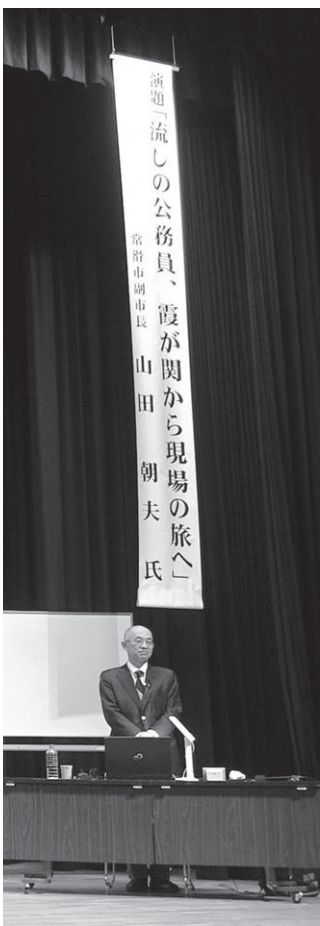 演題「流しの公務員、霞が関から現場の旅へ」
常滑市副市長 山田 朝夫 氏